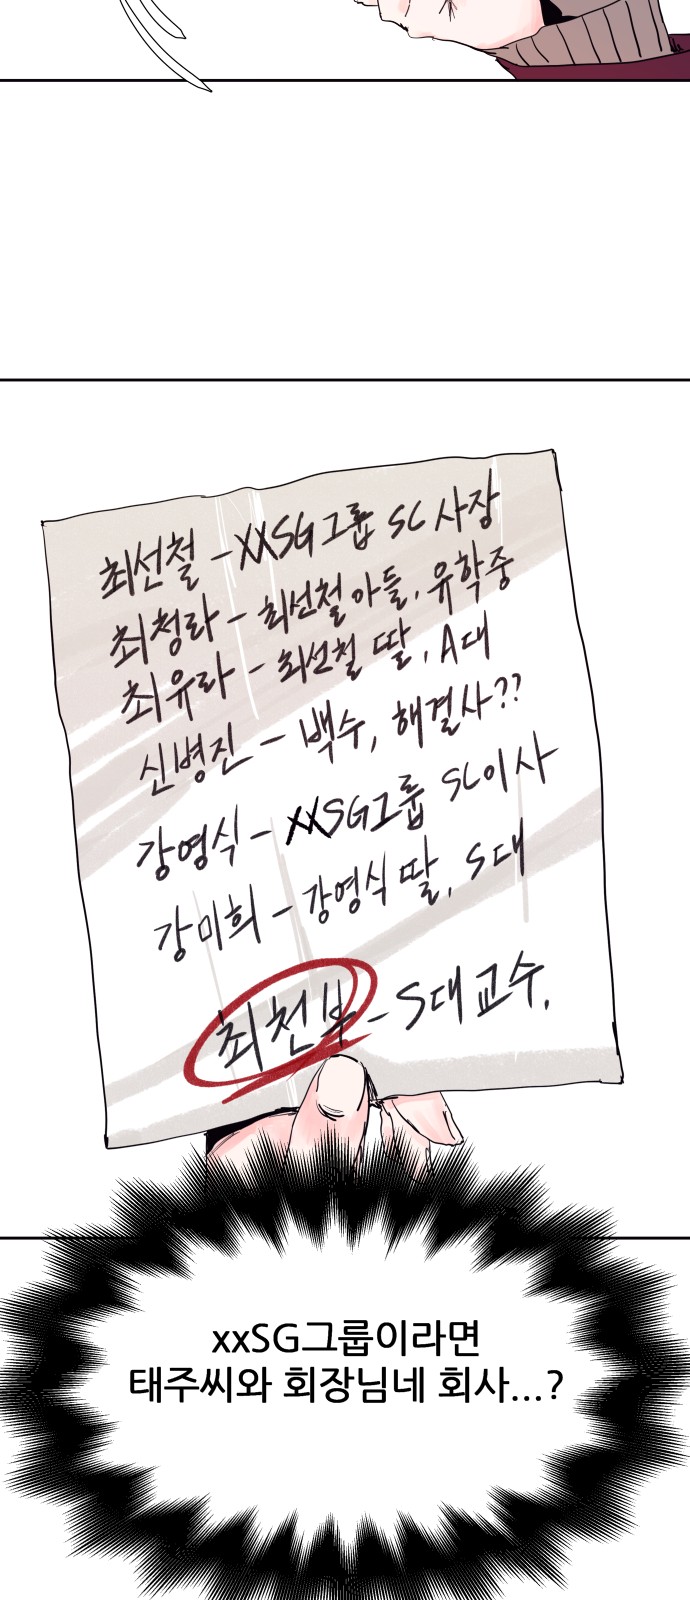 최선철 - XXSG그룹 SC 사장
최청라 - 최선철 아들, 유학중
최유라 - 최선철 딸, A대
신병진 - 백수, 해결사??
강영식 - XXSG그룹 SC이사
강미희 - 강영식 딸, S대
최천부 - S대 교수.
xxSG그룹이라면
태주씨와 회장님네 회사...?